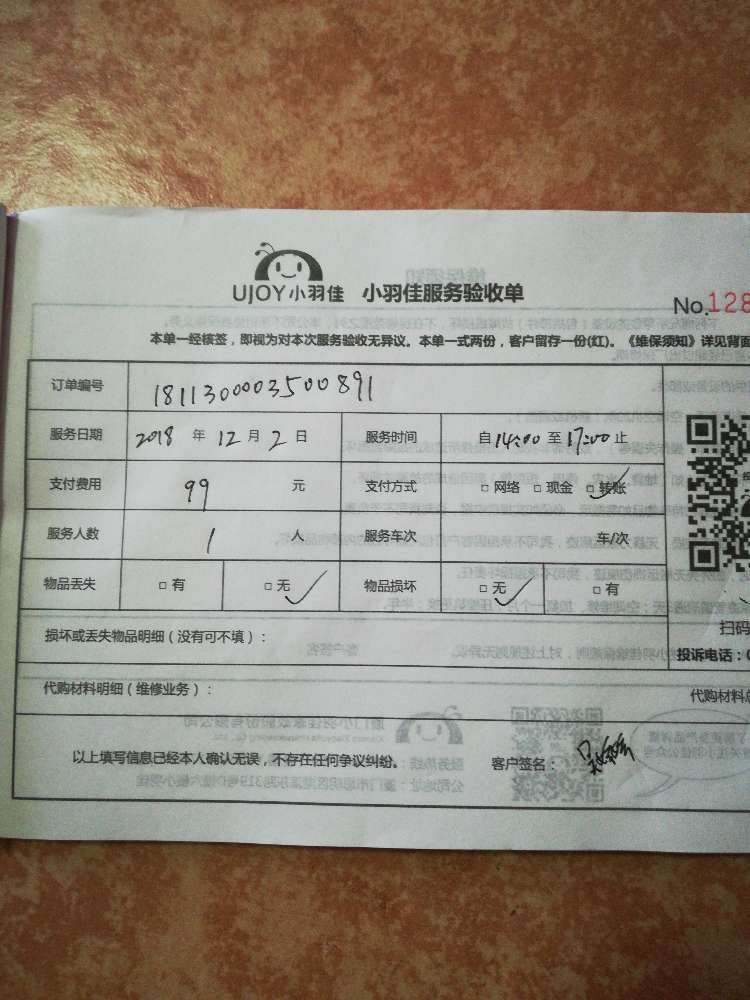 UJOY小羽佳 小羽佳服务验收单
No.128
本单一经核签，即视为对本次服务验收无异议。本单一式两份，客户留存一份(红)。《维保须知》详见背面
订单编号 1811300003500891
服务日期 2018 年 12 月 2 日 服务时间 自 14:00 至 17:00 止
支付费用 99 元 支付方式 □ 网络 □ 现金 □ 转账
服务人数 1 人 服务车次 车/次
物品丢失 □ 有 □ 无 物品损坏 □ 无 □ 有
扫码
损坏或丢失物品明细（没有可不填）：
投诉电话：0
代购材料明细（维修业务）：
代购材料总
以上填写信息已经本人确认无误，不存在任何争议纠纷。 客户签名：